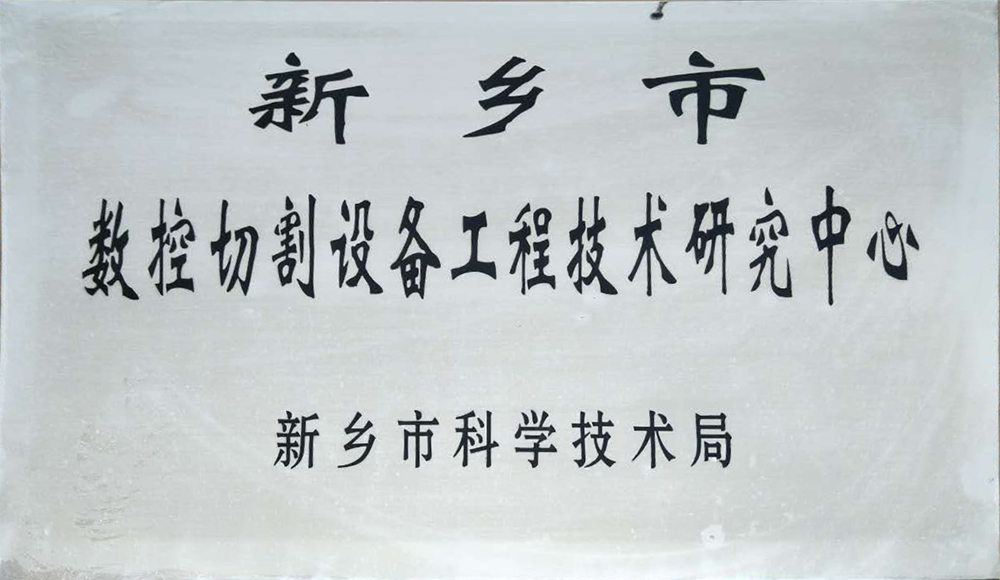 新乡市
数控切割设备工程技术研究中心
新乡市科学技术局